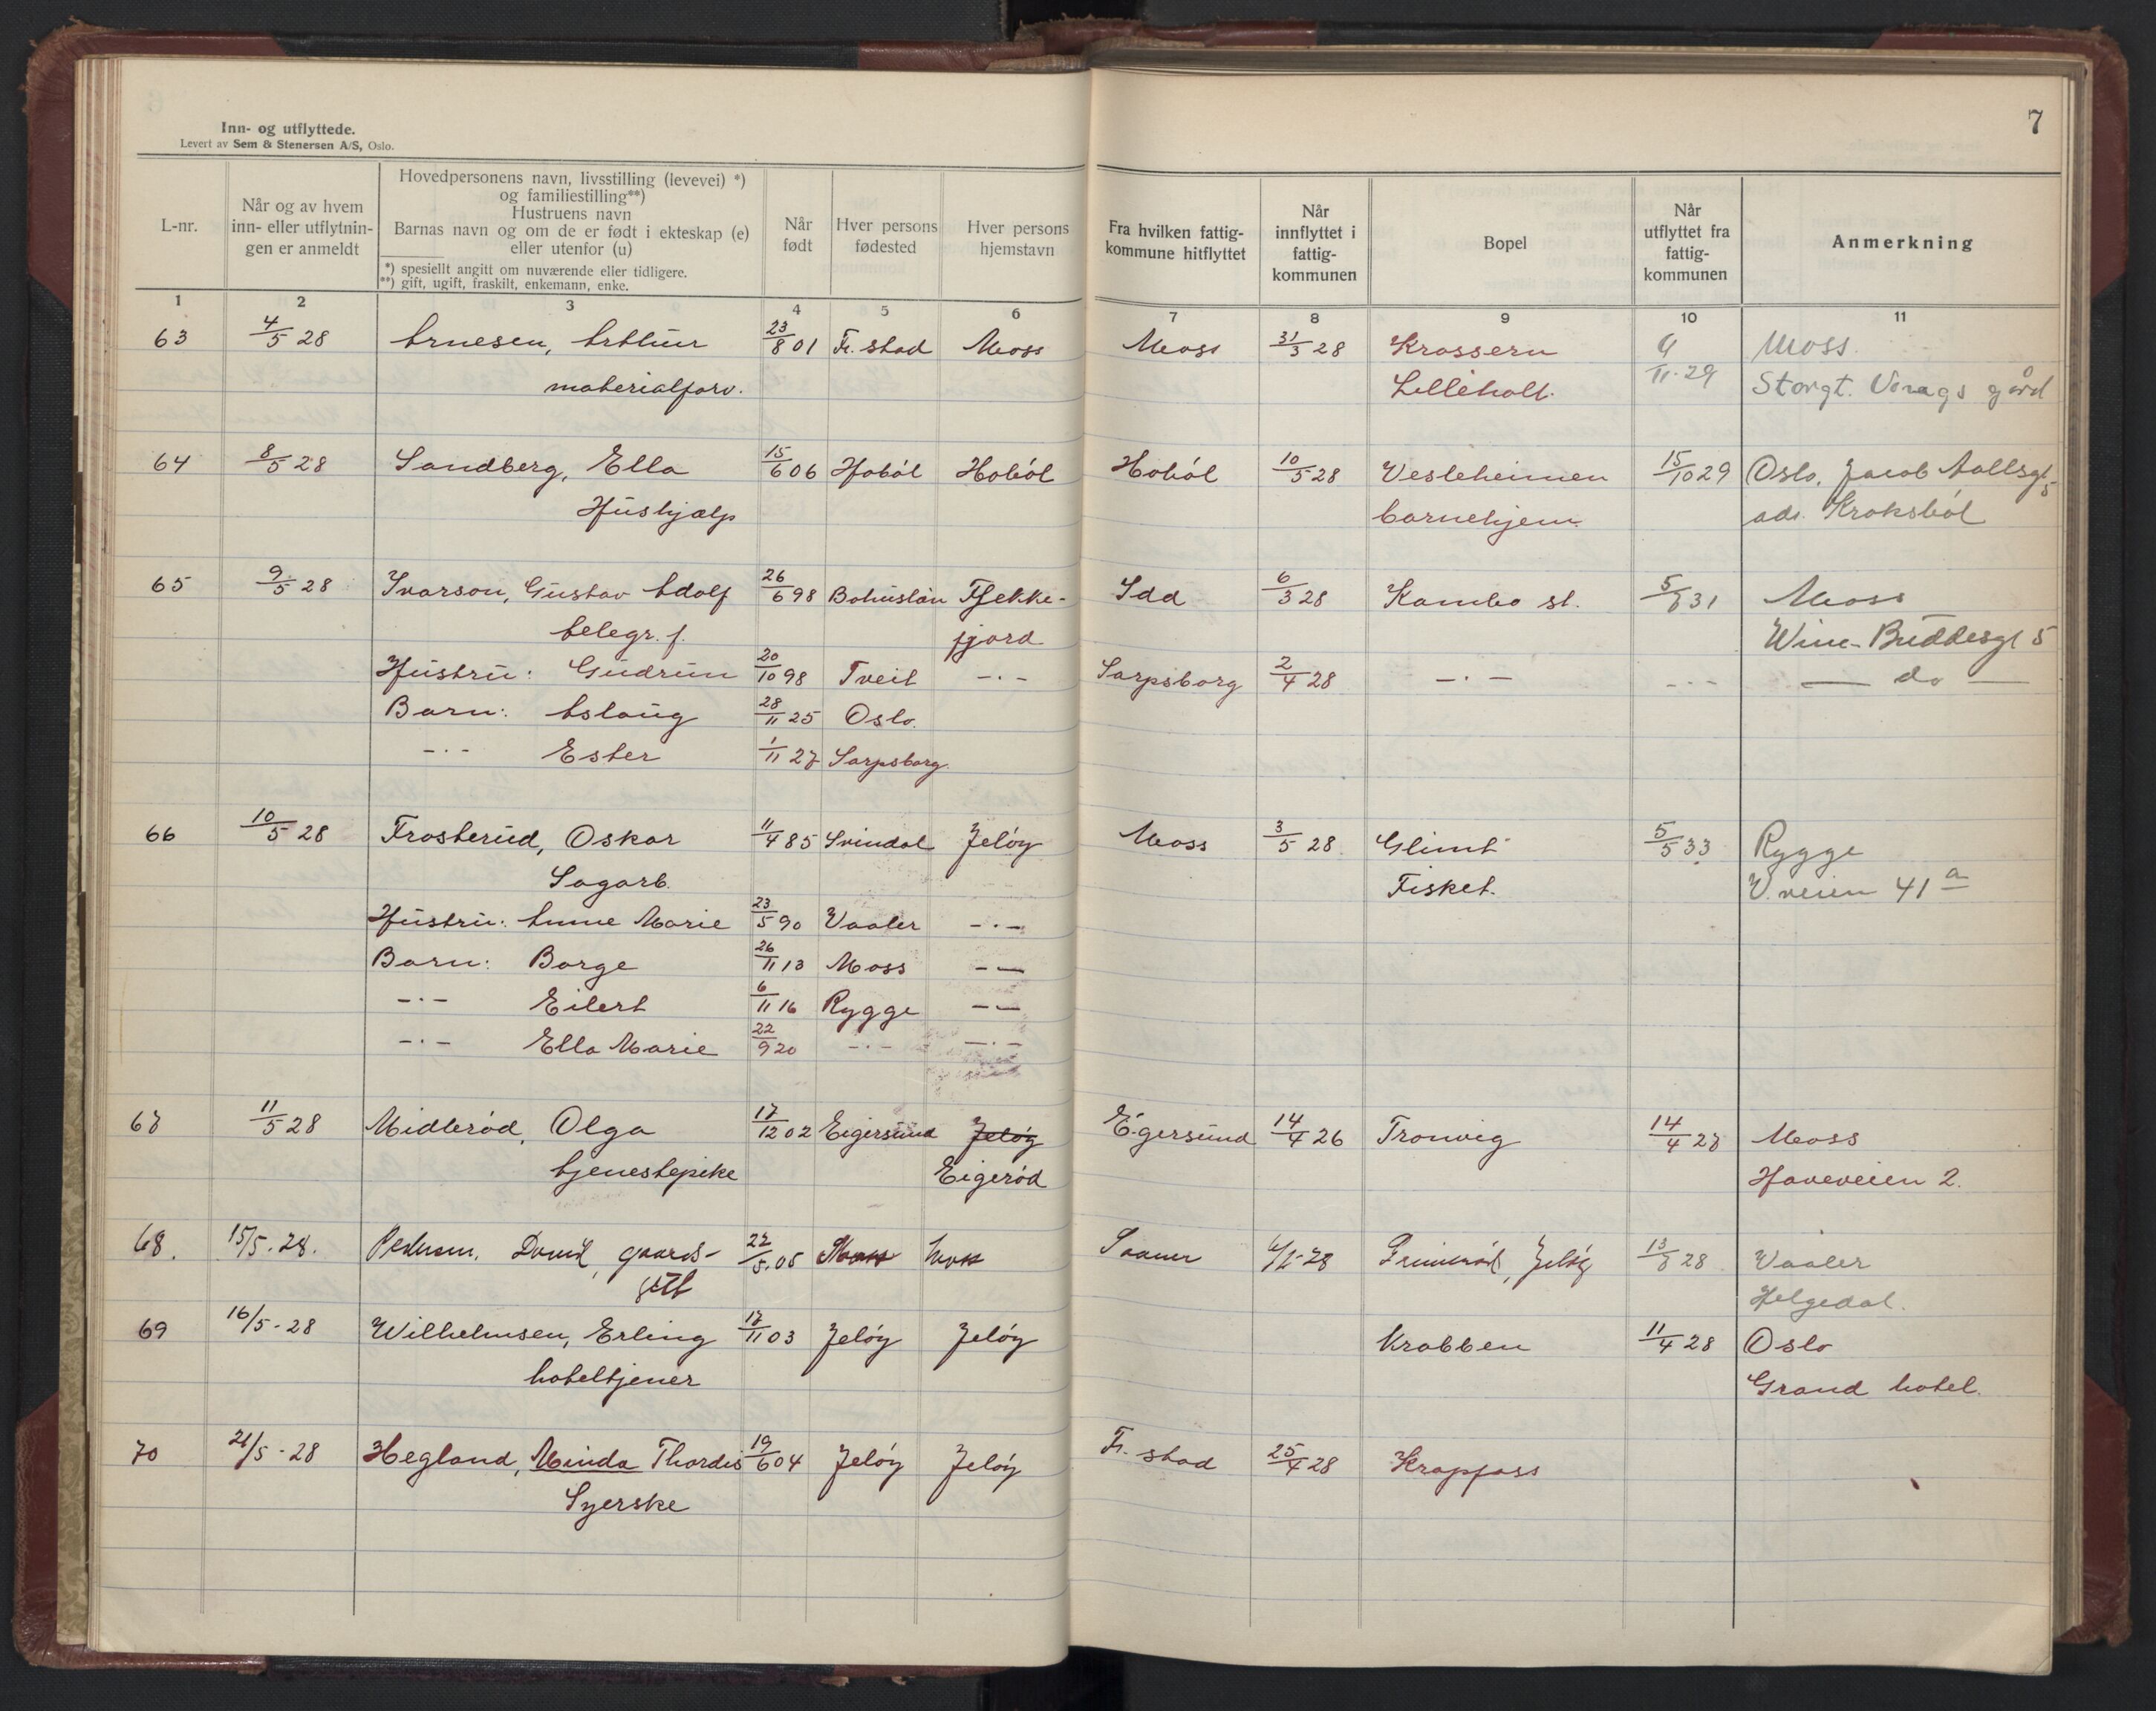 7
Inn- og utflyttede.
Levert av Sem & Stenersen A/S, Oslo.
L-nr.
Når og av hvem inn- eller utflytnin-gen er anmeldt
Hovedpersonens navn, livsstilling (levevei) *)
og familiestilling**)
Hustruens navn
Barnas navn og om de er født i ekteskap (e)
eller utenfor (u)
*) spesiellt angitt om nuværende eller tidligere.
**) gift, ugift, fraskilt, enkemann, enke.
Når født
Hver persons fødested
Hver persons hjemstavn
Fra hvilken fattig-kommune hitflyttet
Når innflyttet i fattig-kommunen
Bopel
Når utflyttet fra fattig-kommunen
Anmerkning
1 2 3 4 5 6 7 8 9 10 11
63 4/5 28 Arnesen, Arthur 23/8 01 Fr.stad Moss Moss 31/3 28 Krossern 9/11-29 Moss
materialforv. Lilleholt. Storgt. gård
64 8/5 28 Sandberg, Ella 15/6 06 Hobøl Hobøl Hobøl 10/5 28 Vesleheimen 15/10 29 Oslo, Jacob Aallsgt 5
Hushjælp barnehjem adr. Kroksbøl
65 9/5 28 Ivarson, Gustav Adolf 26/6 98 Bohuslän Flekke- Idd 6/3 28 Kambo st. 5/8 31 Moss
telegr. f. fjord Wine-Buddesgt 5
Hustru: Gudrun 20/10 98 Tveit -·- Sarpsborg 2/4 28 -·- -·- — do —
Barn: Aslaug 28/11 25 Oslo.
-·- Ester 1/11 27 Sarpsborg.
66 10/5 28 Frosterud, Oskar 11/4 85 Svindal Jeløy Moss 3/5 28 Glimt 5/5 33 Rygge
Sagarb. Fisket. V.veien 41 a
Hustru: Anne Marie 23/5 90 Vaaler -·-
Barn: Borge 26/11 13 Moss -·-
-·- Eilert 6/11 16 Rygge -·-
-·- Ella Marie 22/9 20 -·- -·-
67 11/5 28 Midbrød, Olga 17/12 02 Eigersund Jeløy Eigersund 14/4 26 Tronvig 14/4 27 Moss
tjenestepike Eigerød Haveveien 2.
68. 15/5-28. Pedersen, David, gaards- 22/5-05 Moss Moss Saaner 28 Jeløy 13/8 28 Vaaler
Helgedal.
69 16/5-28 Wilhelmsen, Erling 17/11 03 Jeløy Jeløy Krabben 11/4 28 Oslo
hoteltjener Grand hotel.
70 21/5-28 Hegland, Minda Thordis 19/6 04 Jeløy Jeløy Fr.stad 25/4 28 Krapfoss
Syerske